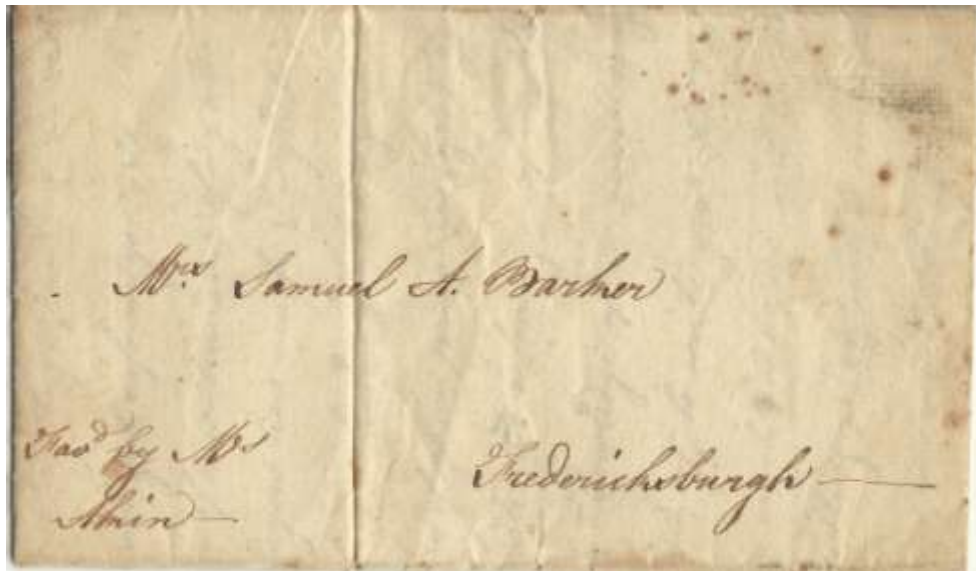 Mrs Samuel A. Barker
Favd by Mr
Frederichsburgh